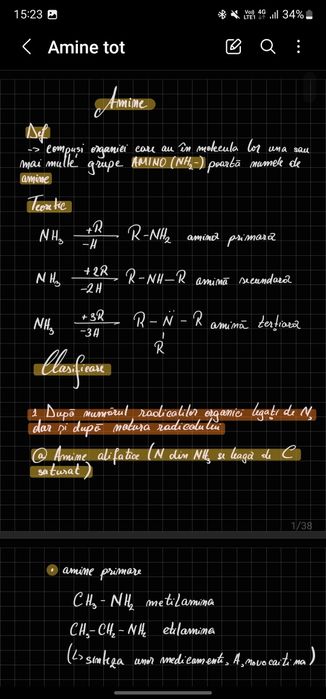 15:23
Vo)) 4G
LTE1
34%
Amine tot
Amine
Def
-> compuși organici care au în molecula lor una sau
mai multe grupe AMINO (NH2-) poartă numele de
amine
Teoretic
NH3 +R / -H R-NH2 amină primară
NH3 +2R / -2H R-NH-R amină secundară
NH3 +3R / -3H R-N̈-R amină terțiară
R
Clasificare
1 După numărul radicalilor organici legați de N,
dar și după natura radicalului
ⓐ Amine alifatice (N din NH3 se leagă de C
saturat)
1/38
• amine primare
CH3-NH2 metilamina
CH3-CH2-NH2 etilamina
(↳ sinteza unor medicamente, A, novocaitina)